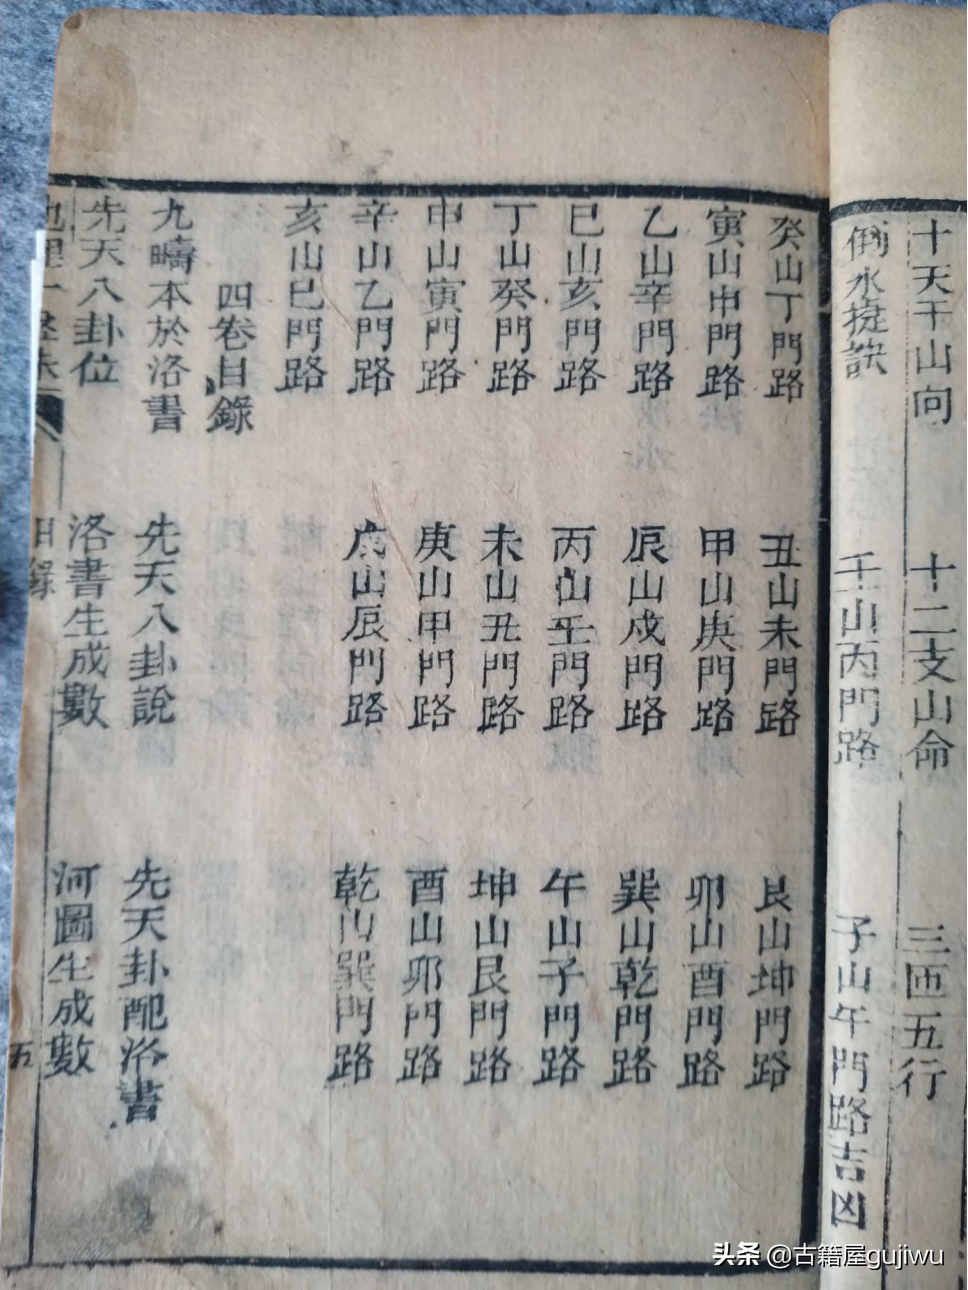 十天干山向　十二支山命　三五行
倒水捷訣　壬山丙門路　子山午門路吉凶
癸山丁門路　丑山未門路　艮山坤門路
寅山申門路　甲山庚門路　卯山酉門路
乙山辛門路　辰山戌門路　巽山乾門路
巳山亥門路　丙山壬門路　午山子門路
丁山癸門路　未山丑門路　坤山艮門路
申山寅門路　庚山甲門路　酉山卯門路
辛山乙門路　戌山辰門路　乾山巽門路
亥山巳門路
四卷目錄
九疇本於洛書　先天八卦說　先天卦配洛書
先天八卦位　洛書生成數　河圖生成數
地理一　目錄　五
头条 @古籍屋gujiwu